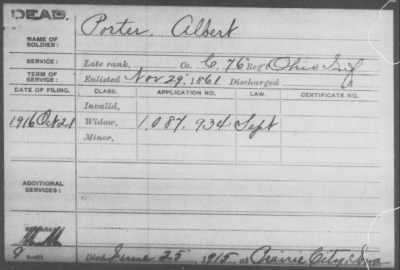 DEAD.
NAME OF SOLDIER: Porter, Albert
SERVICE: Late rank, Co. C, 76 Reg't Ohio Inf
TERM OF SERVICE: Enlisted Nov 29, 1861 Discharged
DATE OF FILING. CLASS. APPLICATION NO. LAW. CERTIFICATE NO.
Invalid,
1916 Oct 21 Widow, 1,087,934 Sept
Minor,
ADDITIONAL SERVICES:
REMARKS:
Died June 25, 1915, at Prairie City, Iowa